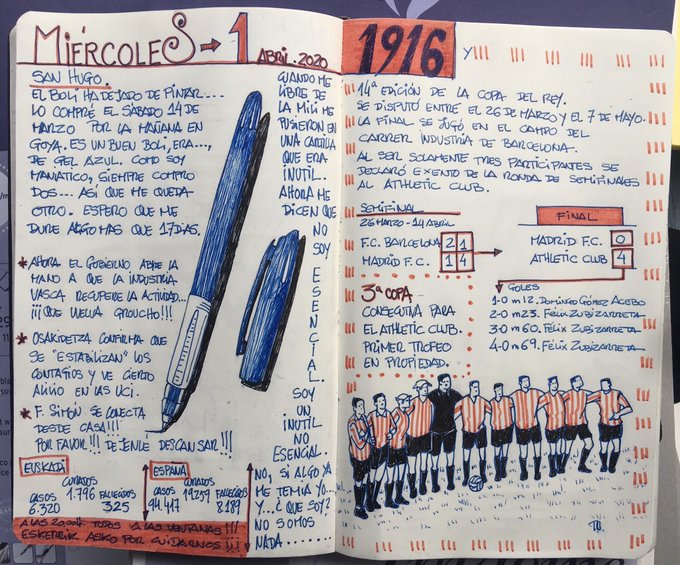 MIÉRCOLES → 1
ABRIL. 2020
SAN HUGO.
EL BOLI HA DEJADO DE PINTAR....
LO COMPRÉ EL SÁBADO 14 DE
MARZO POR LA MAÑANA EN
GOYA. ES UN BUEN BOLI, ERA...,
DE GEL AZUL. COMO SOY
MANIATICO, SIEMPRE COMPRO
DOS... ASÍ QUE ME QUEDA
OTRO. ESPERO QUE ME
DURE ALGO MAS QUE 17 DIAS.
* AHORA EL GOBIERNO ABRE LA
MANO A QUE LA INDUSTRIA
VASCA RECUPERE LA ACTIVIDAD...
¡¡¡QUE VUELVA GROUCHO!!!
* OSAKIDETZA CONFIRMA QUE
SE "ESTABILIZAN" LOS
CONTAGIOS Y VE CIERTO
ALIVIO EN LAS UCI.
* F. SIMÓN SE CONECTA
DESDE CASA!!!
POR FAVOR!!! DEJENLÉ DESCANSAR!!!
EUSKADI
CASOS 6.320
CURADOS 1.796
FALLECIDOS 325
ESPAÑA
CASOS 94.417
CURADOS 19259
FALLECIDOS 8.189
A LAS 20,00H. TODOS A LAS VENTANAS!!!
ESKERRIK ASKO POR CUIDARNOS!!!
CUANDO ME
LIBRE DE
LA MILI ME
PUSIERON EN
UNA CARTILLA
QUE ERA
INUTIL.
AHORA ME
DICEN QUE
NO
SOY
ESENCIAL.
SOY
UN
INUTIL
NO
ESENCIAL.
NO, SI ALGO YA
ME TEMIA YO...
Y...¿QUE SOY?
NO SOMOS
NADA
1916
Y
14ª EDICIÓN DE LA COPA DEL REY.
SE DISPUTÓ ENTRE EL 26 DE MARZO Y EL 7 DE MAYO.
LA FINAL SE JUGÓ EN EL CAMPO DEL
CARRER INDUSTRIA DE BARCELONA.
AL SER SOLAMENTE TRES PARTICIPANTES SE
DECLARÓ EXENTO DE LA RONDA DE SEMIFINALES
AL ATHLETIC CLUB.
SEMIFINAL
26 MARZO - 14 ABRIL
F.C. BARCELONA 2 1
MADRID F.C. 1 4
FINAL
MADRID F.C. 0
ATHLETIC CLUB 4
GOLES
1-0 m12. DOMINGO GÓMEZ ACEBO
2-0 m23. FÉLIX ZUBIZARRETA
3-0 m60. FÉLIX ZUBIZARRETA.
4-0 m69. FÉLIX ZUBIZARRETA.
3ª COPA
CONSECUTIVA PARA
EL ATHLETIC CLUB.
PRIMER TROFEO
EN PROPIEDAD.